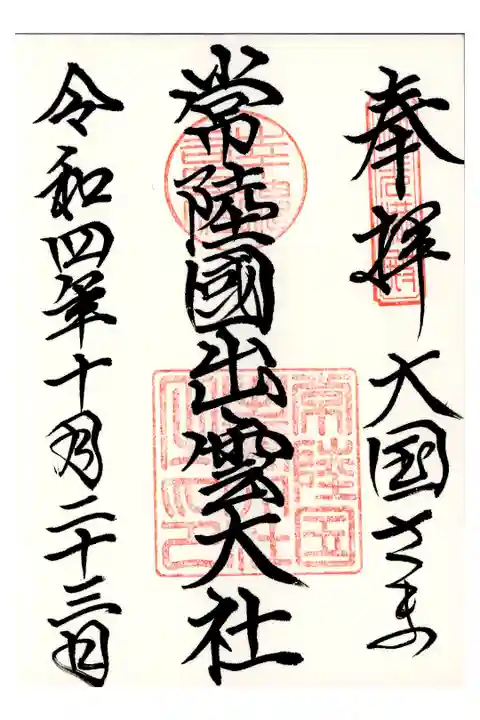 奉拝
大国さま
常陸國出雲大社
令和四年十月二十三日
常陸国